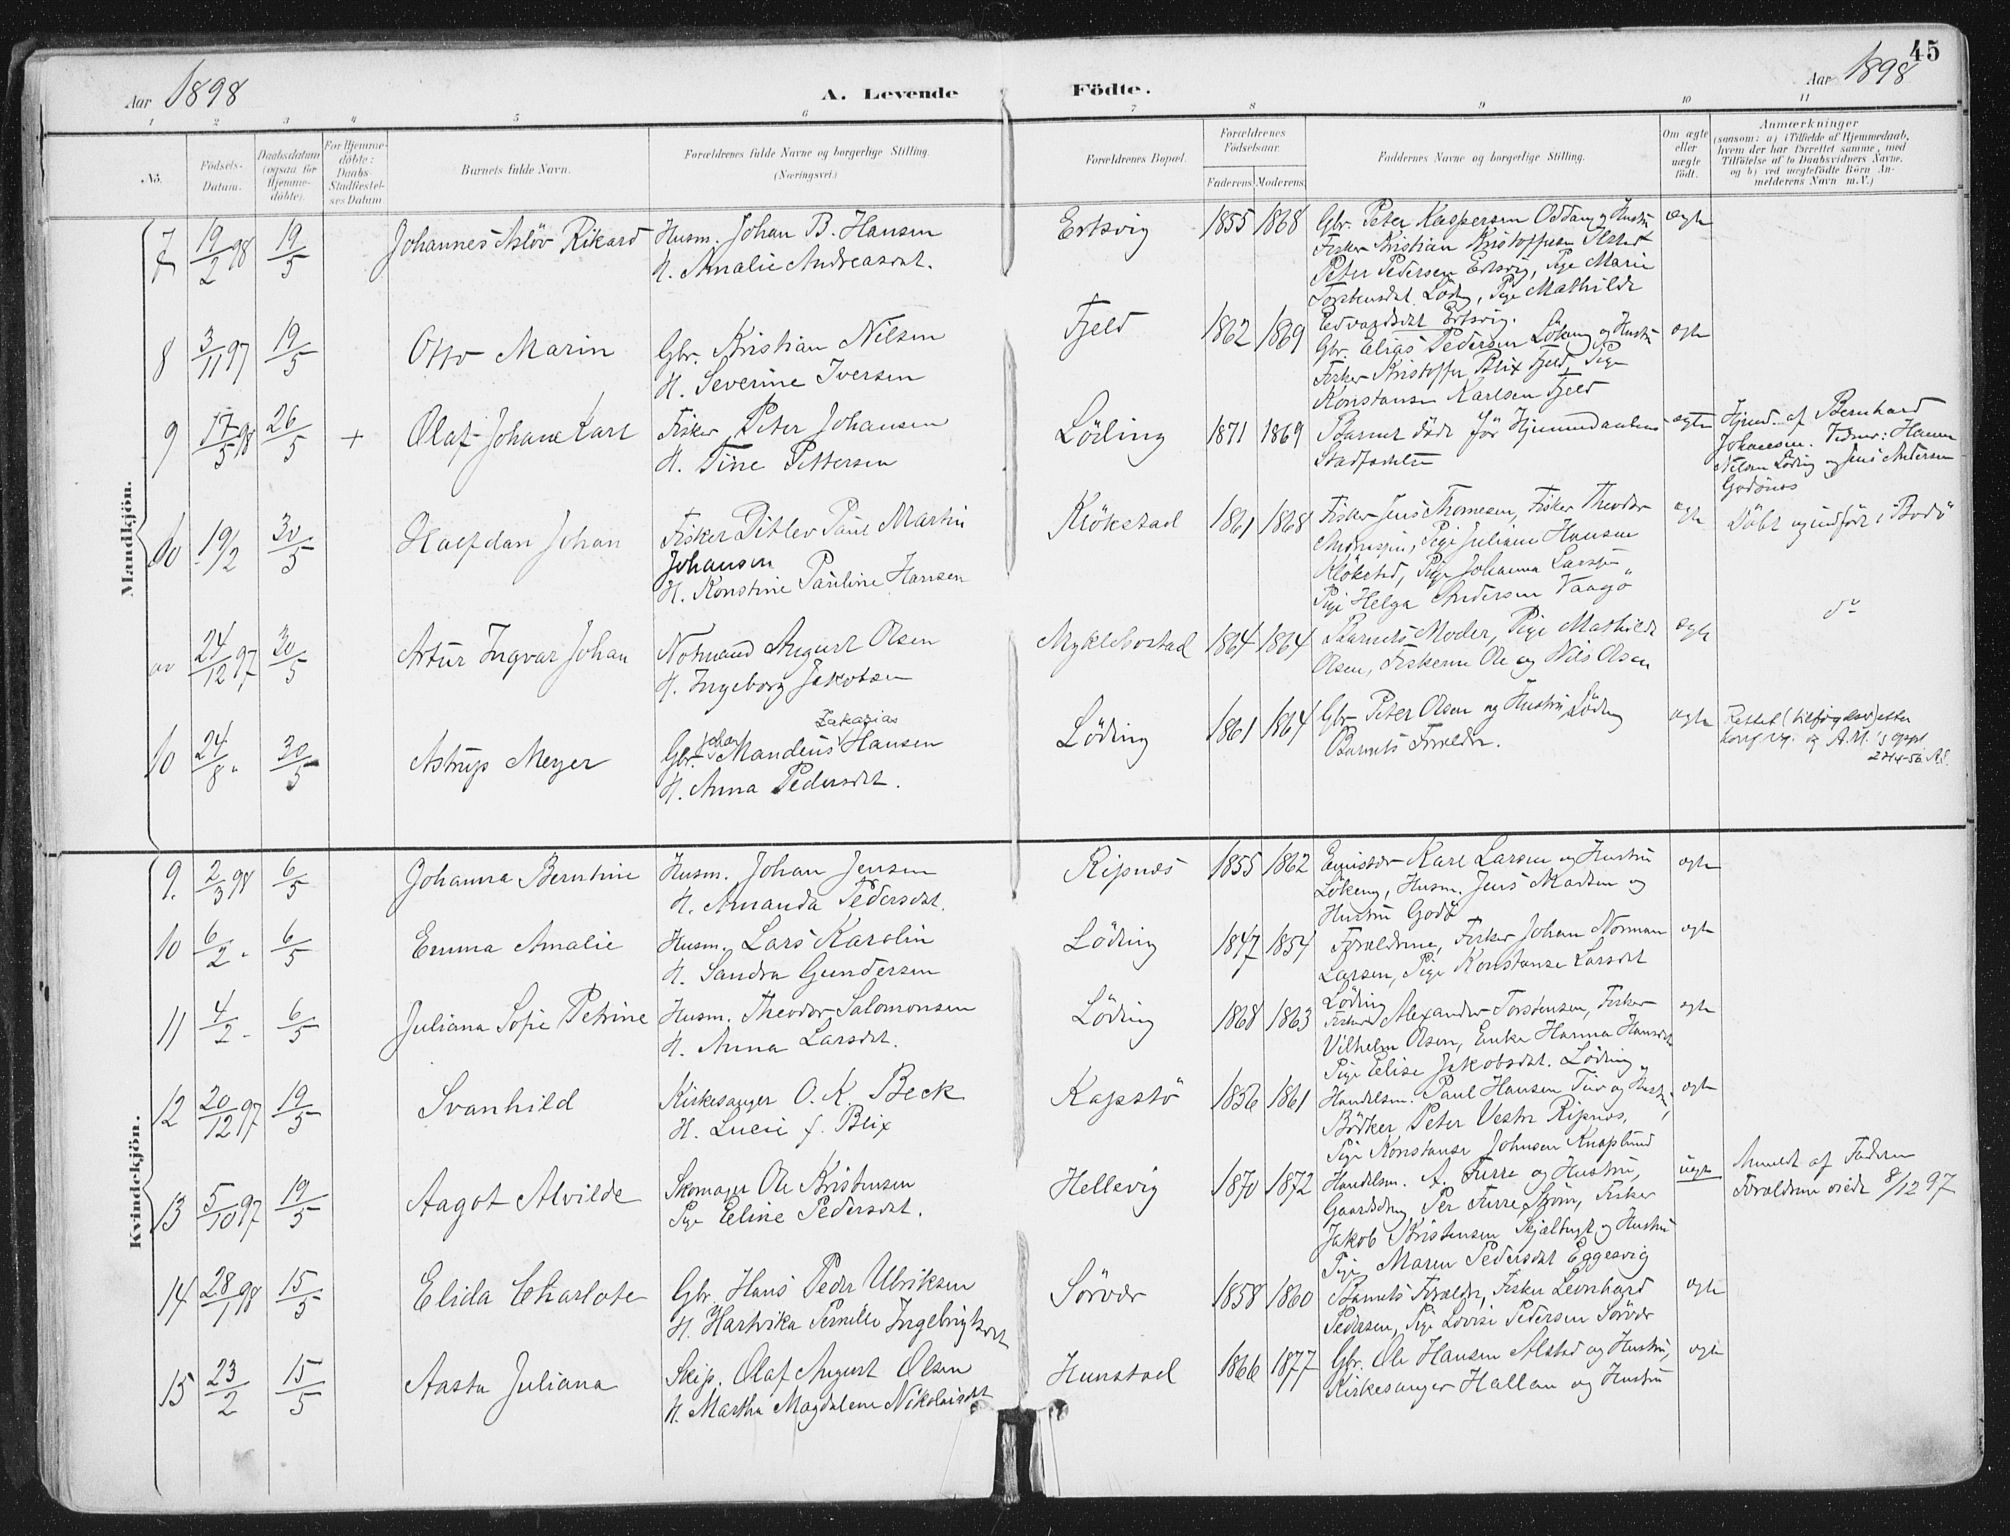 45
Aar 1898 A. Levende Födte. Aar 1898
1 2 3 4 5 6 7 8 9 10 11
No.
Födsels-
Datum.
Daabsdatum
(ogsaa for
Hjemme-
döbte).
For Hjemme-
döbte:
Daabs-
Stadfæstel-
ses Datum
Barnets fulde Navn.
Forældrenes fulde Navne og borgerlige Stilling.
(Næringsvei.)
Forældrenes Bopæl.
Forældrenes
Födselsaar
Faderens Moderens
Faddernes Navne og borgerlige Stilling.
Om ægte
eller
uægte
födt.
Anmærkninger
(saasom: a) i Tilfælde af Hjemmedaab,
hvem der har forrettet samme, med
Tilföielse af to Daabsvidners Navne,
og b) ved uægtefödte Börn An-
melderens Navn m.V.)
Mandkjön.
7 19/2 98 19/5 Johannes Aslöv Rikard Husm. Johan B. Hansen Ertsvig 1855 1868 Gbr. Peter Kaspersen Oddan og Hustru ægte
H. Amalie Andreasdat. Fisker Kristian Kristoffersen
Peter Pedersen Ertsvig, Pige Marie
Torstensdat. Löding, Pige Mathilde
Edvardsdat Ertsvig.
8 3/11 97 19/5 Otto Marin Gbr. Kristian Nilsen Fjeld 1862 1869 Gbr. Elias Pedersen Lökeng og Hustru ægte
H. Severine Iversen Fisker Kristoffer Blix Fjeld, Pige
Konstanse Karlsen Fjeld
9 17/5 98 26/5 + Olaf Johane Karl Fisker Peter Johansen Löding 1871 1869 Barnet döde för Hjemmedaabens ægte Hjmd. af Bernhard
H. Tine Pettersen Stadfæstelse Johansen. Vidner: Hans
Nilsen Löding og Jens Andersen
Godönes
10 19/2 30/5 Halfdan Johan Fisker Ditlev Paul Martin Klökstad 1861 1868 Fisker Jens Thomesen, Fisker Theodor ægte Döbt og indfört i Bodö
Johansen Andreasen, Pige Juliane Hansen
H. Konstine Pauline Hansen Klökstad, Pige Johanna Larsen
Pige Helga Andersen Vaagö
24/12 97 30/5 Artur Ingvar Johan Notmand August Olsen Myklebostad 1864 1864 Barnets Moder, Pige Mathilde ægte do
H. Ingeborg Jakobsen Olsen, Fiskerne Ole og Nils Olsen
10 24/8 " 30/5 Astrup Meyer Gbr. Johan Mandeus Zakarias Hansen Löding 1861 1864 Gbr Peter Olsen og Hustru Löding ægte Rettet (tilføyelse) etter
H. Anna Pedersdat. Barnets Forældre.
Kvindekjön.
9. 2/3 98 6/5 Johanna Berntine Husm. Johan Jensen Ripnes 1855 1862 Karl Larsen og Hustru ægte
H. Amanda Pedersdat. Lökeng, Husm. Jens Madsen og
Hustru Godö
10 6/2 " 6/5 Emma Amalie Husm. Lars Karolin Löding 1847 1854 Forældrene, Fisker Johan Norman ægte
H. Sandra Gundersen Larsen, Pige Konstanse Larsdat
Löding
11 4/2 - 6/5 Juliana Sofie Petrine Husm. Theodor Salomonsen Löding 1868 1863 Fisker Alexander Torstensen, Fisker ægte
H. Anna Larsdat. Vilhelm Olsen, Enke Hanna Hansdat
Pige Elise Jakobsdat. Löding
12 20/12 97 19/5 Svanhild Kirkesanger O. K. Beck Kapstö 1836 1861 Handelsm. Paul Hansen Tuv og Hustru; ægte
H. Lucie f. Blix Bödker Peter Vestr Ripnes,
Pige Konstanse Johnsen Knaplund
13 5/10 97 19/5 Aagot Alvilde Skomager Ole Kristensen Hellevig 1870 1872 Handelsm. A. Furre og Hustru, uægt Anmeldt af Faderen
Pige Eline Pedersdat. Gaardsdreng Per Furre, Fisker Forældrene viede 8/12 97
Jakob Kristensen Skjælbugt og Hustru
Pige Maren Pedersdat Eggesvig
14 28/1 98 15/5 Elida Charlote Gbr. Hans Peder Ulriksen Sörvær 1858 1860 Barnets Forældre, Fisker Leonhard ægte
H. Hartvika Pernille Ingebrigtsdat Pedersen, Pige Lovise Pedersen Sörvær
15 23/2 15/5 Aasta Juliana Skip. Olaf August Olsen Hunstad 1866 1877 Gbr. Ole Hansen Alstad og Hustru, ægte
H. Martha Magdalene Nikolaisdat Kirkesanger Hallan og Hustru